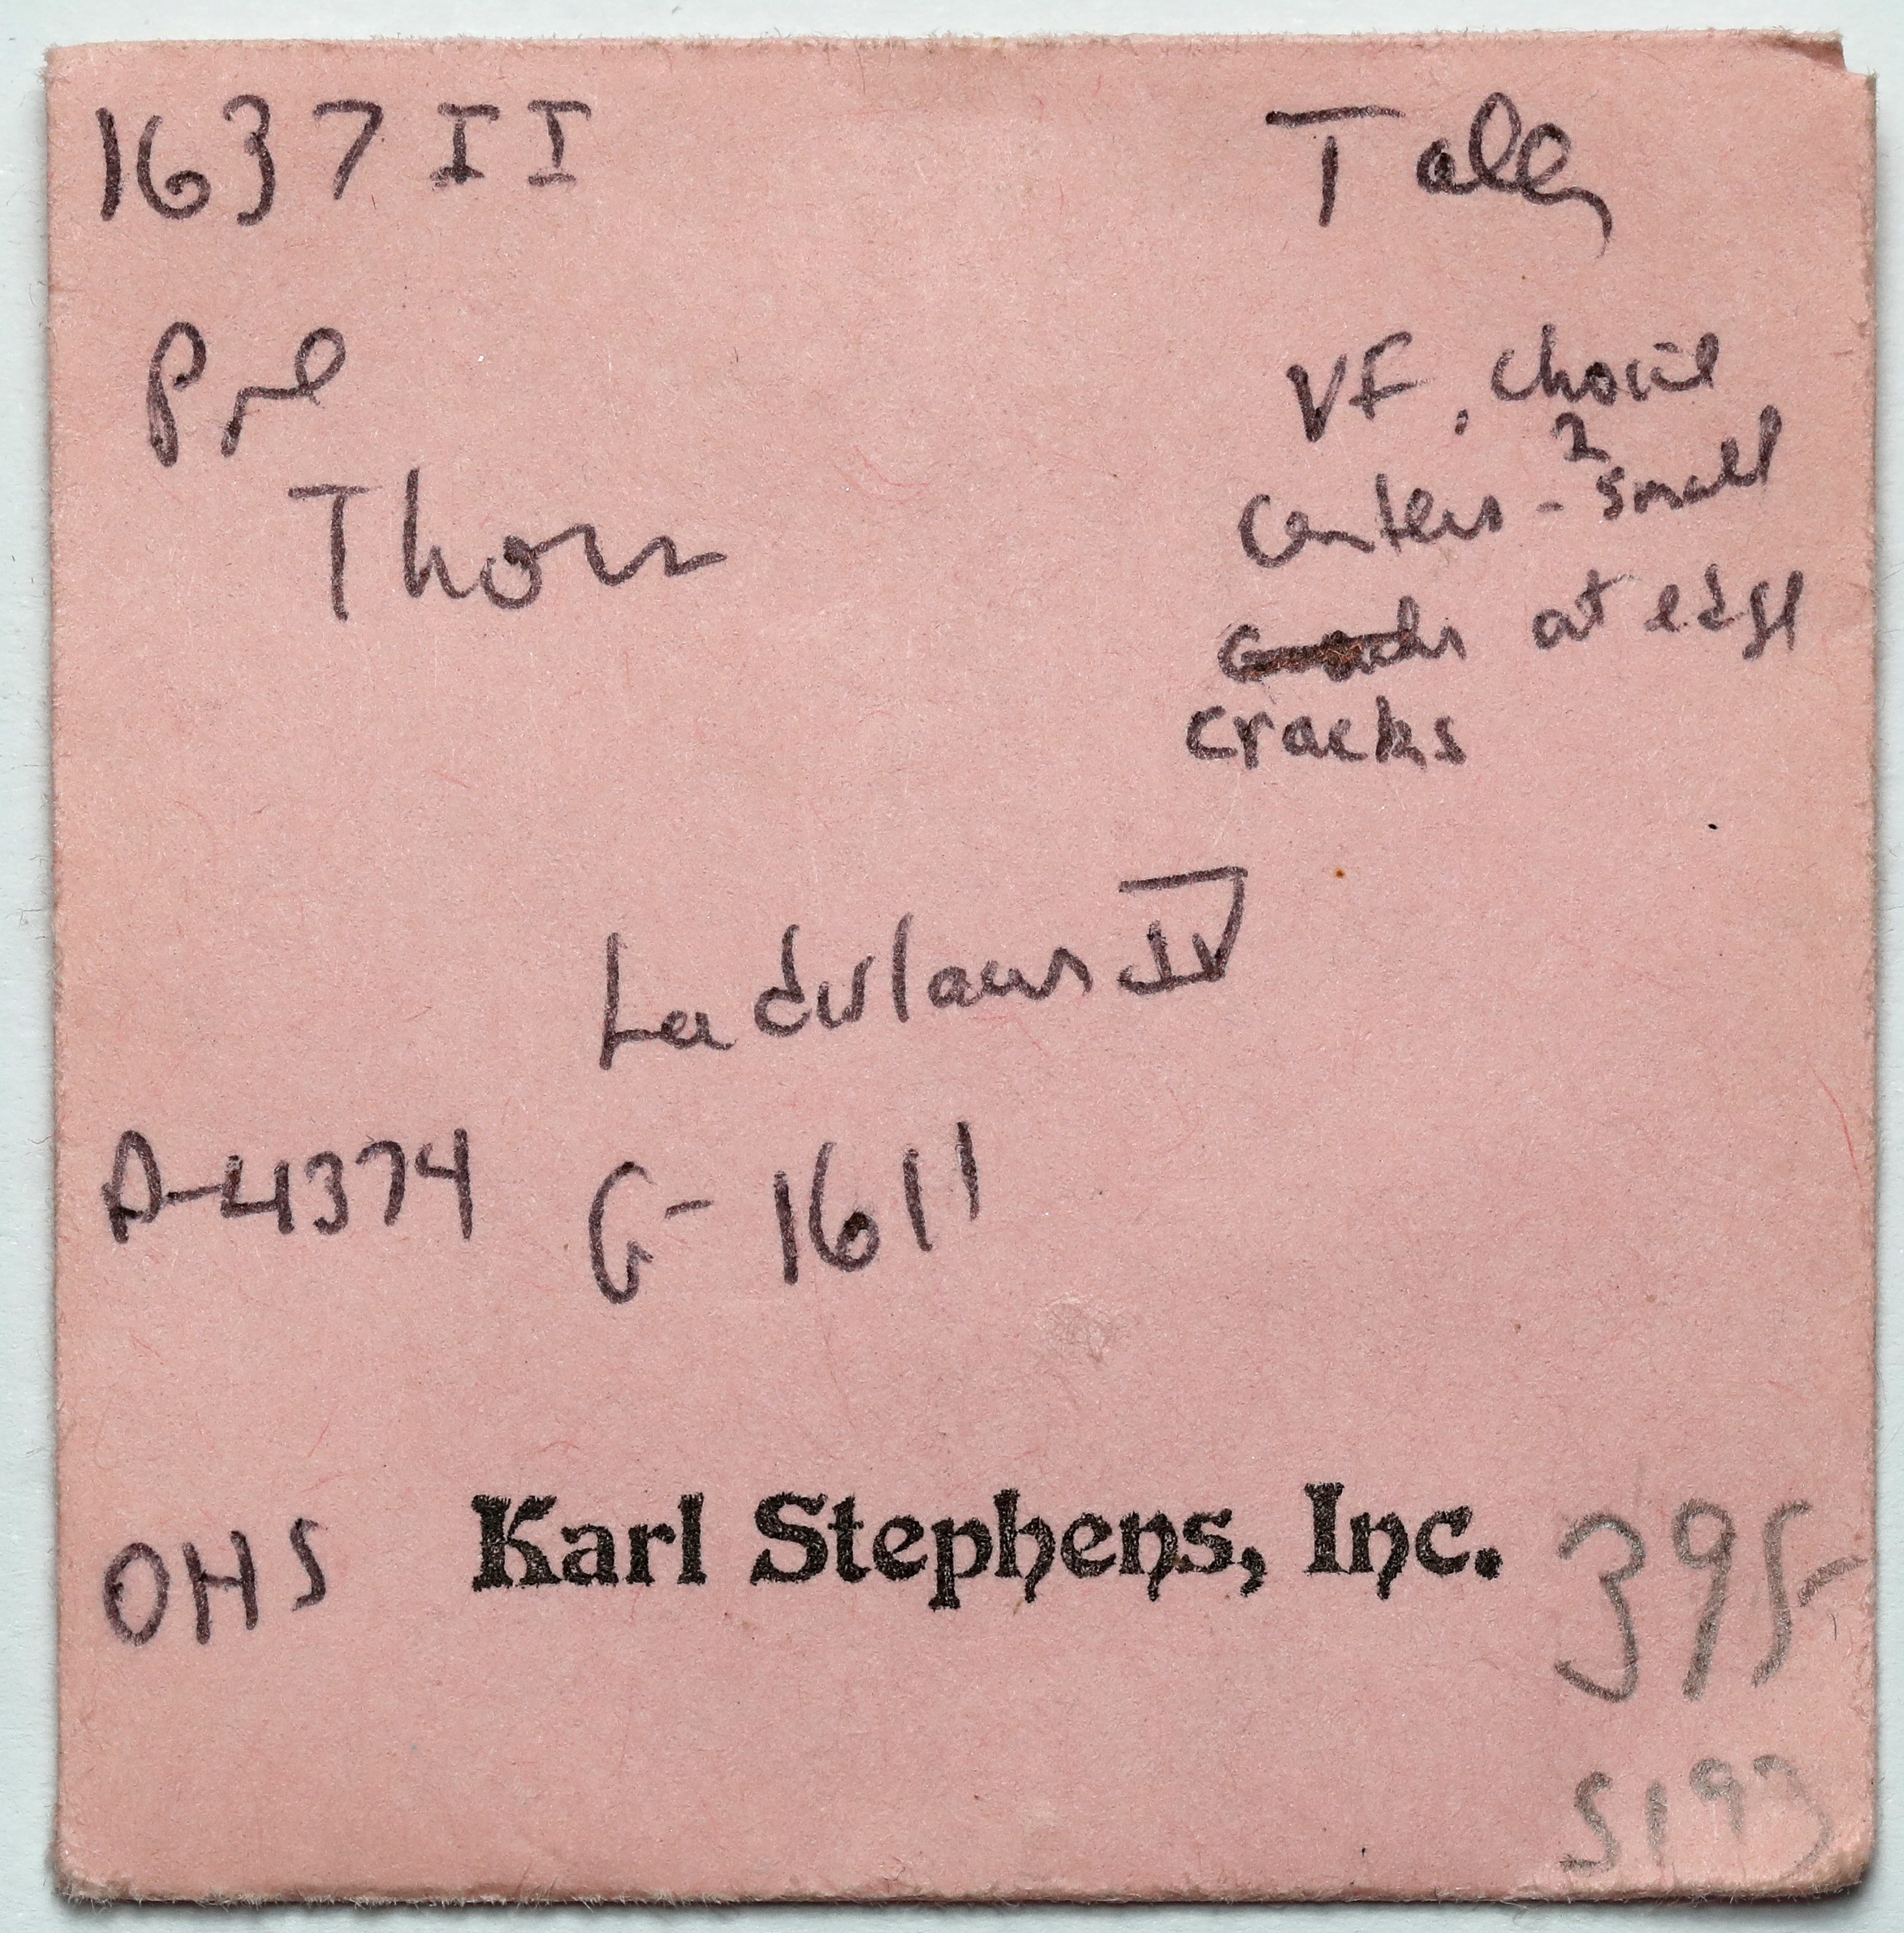 1637 II Taler
Pol
Thorn
VF, choice
2
centers - small
at edge
cracks
Ladislaus IV
D-4374 G-1611
OHS Karl Stephens, Inc. 395-
S193